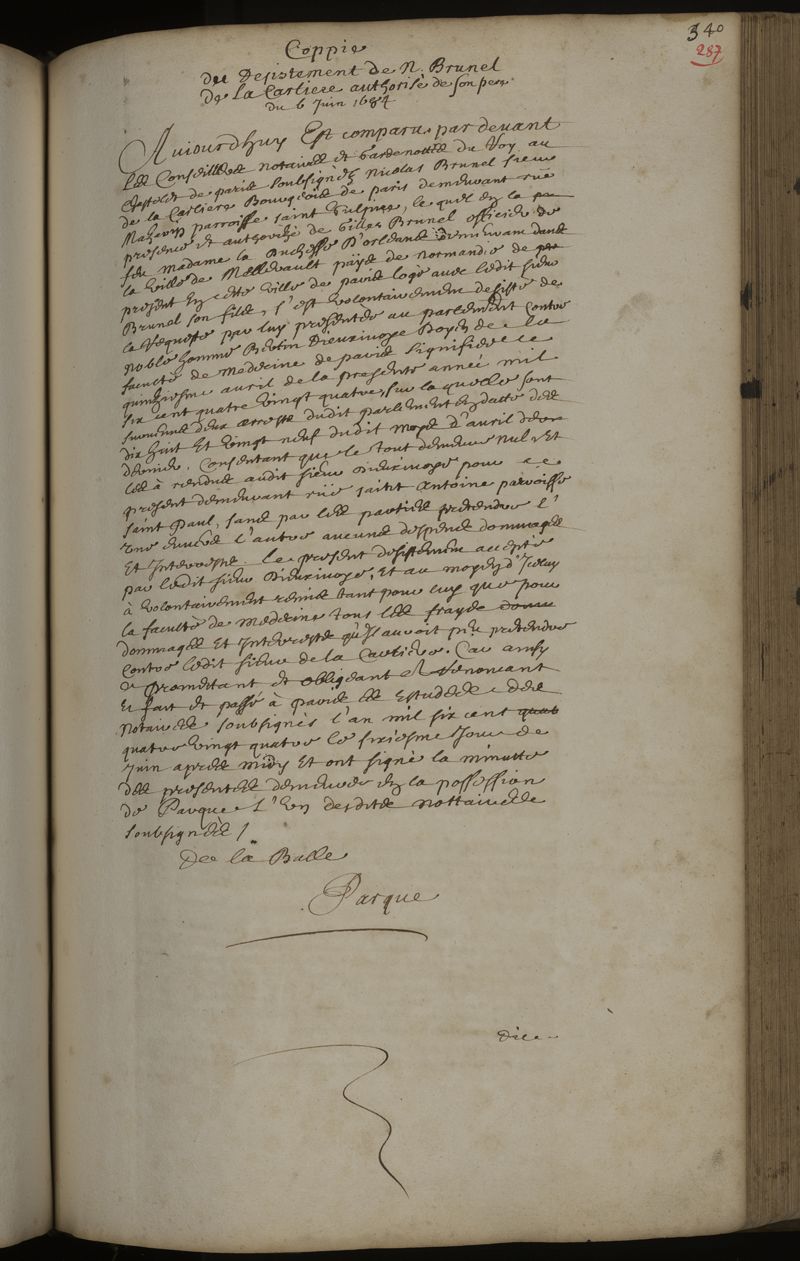 340
287
Coppie
du Desistement de N. Brunel
de la Carliere authorisé de son pere
du 6 Juin 1684
Aujourdhuy Est comparu par devant
Les Conseillers notaires et gardenottes du Roy au
Chastelet de paris soubsignés Nicolas Brunel sieur
de la Carliere Bourgeois de paris demeurant rue
Mazarin parroisse saint Sulpice, le quel en la
presence et authorité de Gilles Brunel officier de
feu Madame la Duchesse D'orleans demeurant dans
la ville de païs de normandie de
present En cette ville de paris logé avec ledit sieur
Brunel son fils, s'est volontairement desisté de
la Requeste par luy presentée au parlement contre
noble homme Bertin Dieuxivoye Doyen de la
faculté de Medecine de paris signifiée le
quinziesme auril de la presente année mil
six cent quatre vingt quatre, sur laquelle sont
intervenus deux arrests dudit parlement en datte des
dix huit Et vingt neuf dudit mois d'auril
dernier. Consentant que le tout demeure nul, Et
les a rendus audit sieur Dieuxivoye pour ce
present demeurant rüe saint Antoine parroisse
saint Paul, sans par les parties pretendre l'
une envers l'autre aucuns despens dommages
Et Interrests. le present desistement accepté
par ledit sieur Dieuxivoye, Et au moyen d'Iceluy
à volontairement remis tant pour luy que pour
la faculté de Medecine tous les frayes
dommages Et Interrests qu'Il auroit pû pretendre
Contre ledit sieur de la Carliere. Car ainsy
promettant et obligeant et Renoncant
Et fait et passé à paris Es Estudes des
notaires soubsignés l'an mil six cent
quatre vingt quatre le sixiesme Jour de
Juin apres midy Et ont signé la minutte
des presentes demeurée en la possession
de Parque L'Un desdits nottaires
soubsignés /
De la Balle
Parque